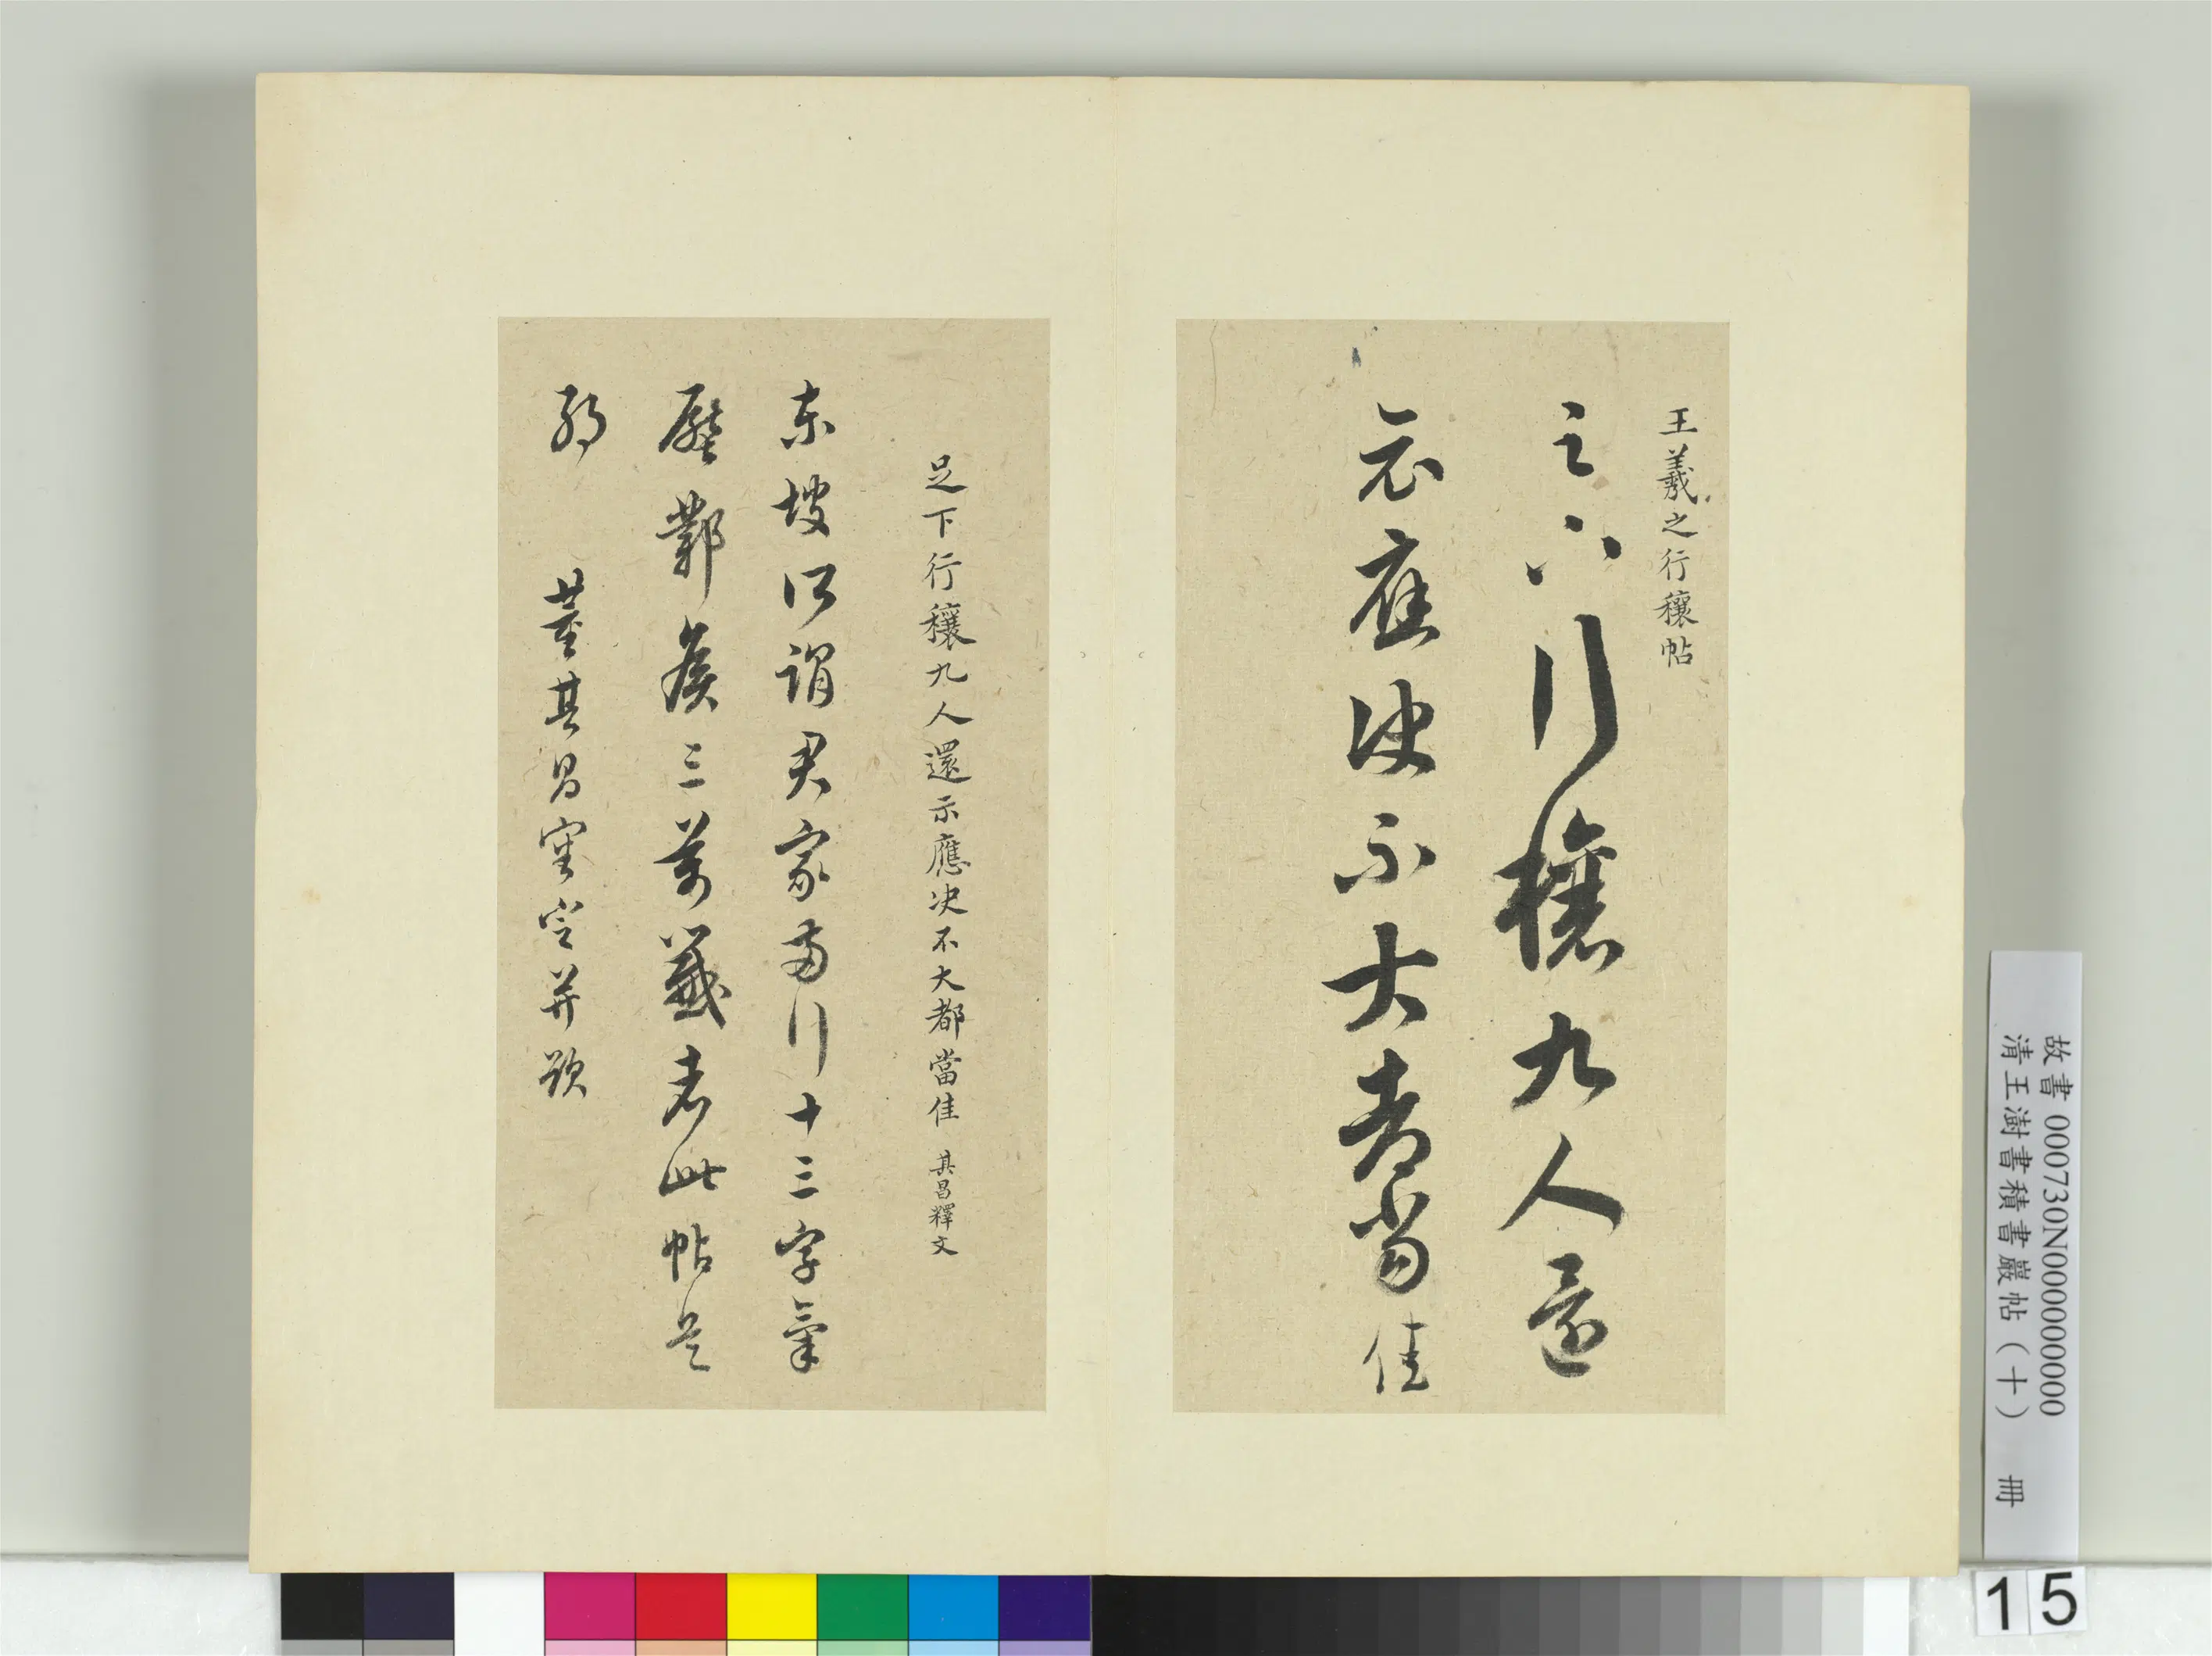 王羲之行穰帖
足下行穰九人還
示應決不大都當佳
足下行穰九人還示應决不大都當佳 其昌釋文
東坡所謂君家兩行十三字氣
壓鄴侯三萬籤者此帖是
耶 董其昌審定并題
故書 000730N000000000
清王澍書積書巖帖(十) 冊
15